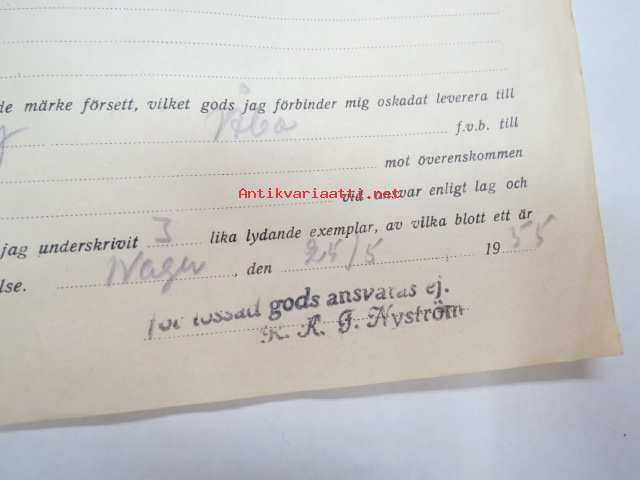 de märke försett, vilket gods jag förbinder mig oskadat leverera till
Åbo f.v.b. till
mot överenskommen
Antikvariaatti.net
vid ansvar enligt lag och
jag underskrivit 3 lika lydande exemplar, av vilka blott ett är
lse. Nagu, den 25/5 1955
för lossat gods ansvaras ej.
K. A. J. Nyström